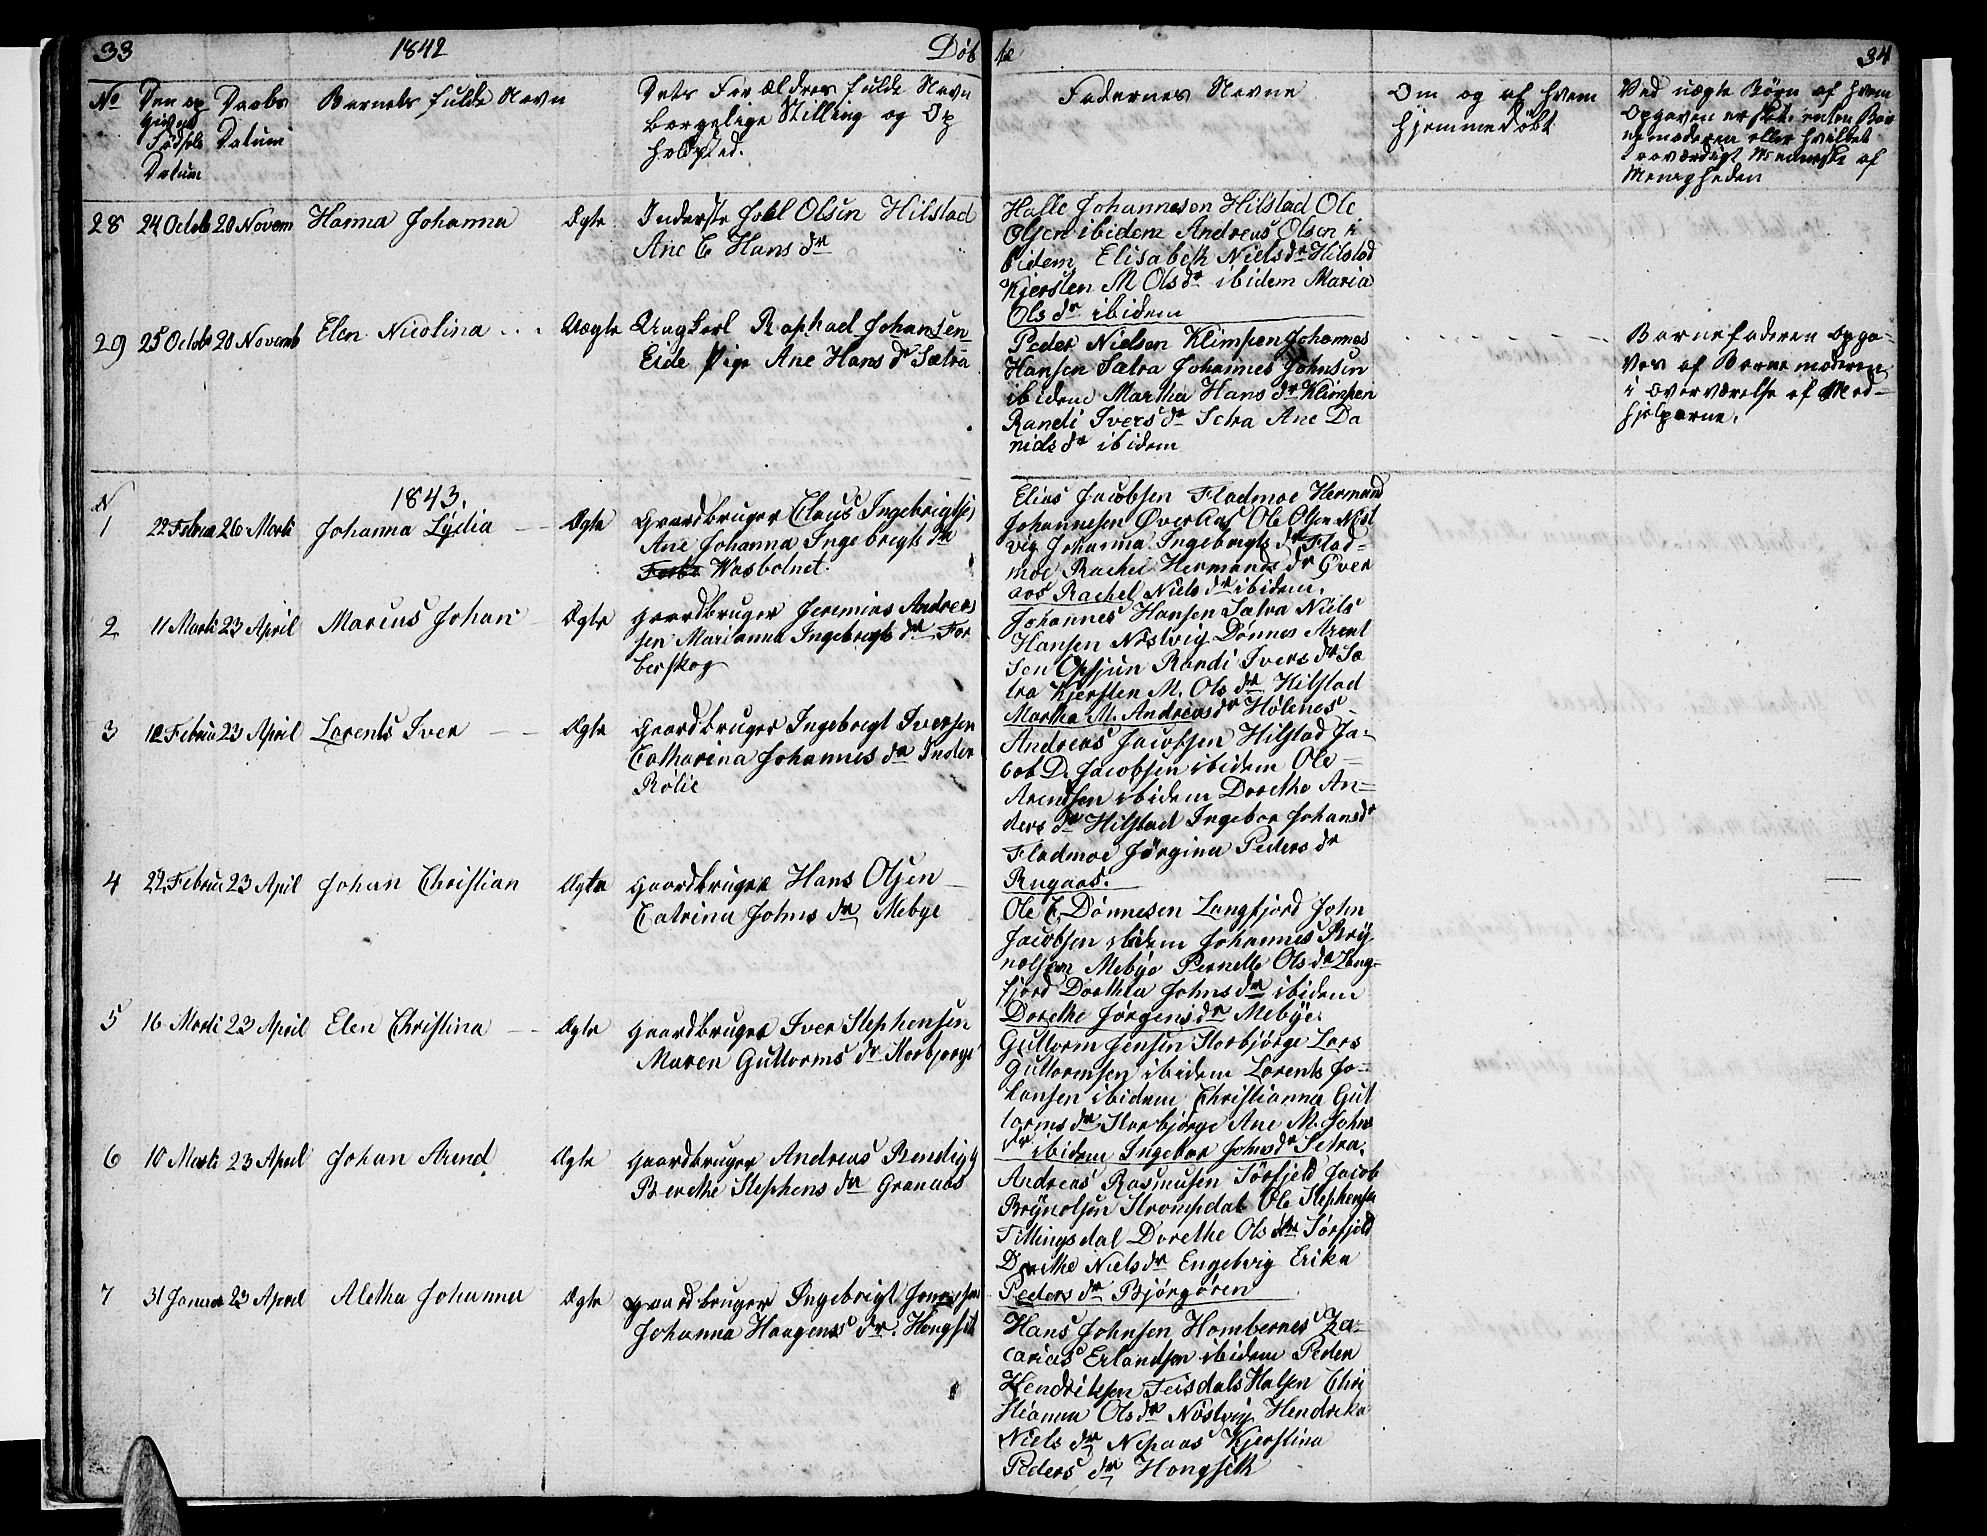 33
1842
Døb
te
34
No
Den op
givne
Fødsels
Datum
Daabs
Datum
Barnets fulde Navn
Dets Forældres fulde Navn
borgelige Stilling og Op
holdsted.
Faderens Navne
Om og af hvem
hjemmedøbt
Ved uægte Børn af hvem
Opgaven er skedt enten Bar
nemoderen eller hvilket
troværdigt Menneske af
Menigheden
28 24 Octob 20 Novem Hanna Johanna Ægte
Inderste Joel Olsen Hilstad
Ane C Hans dr
Halle Johannesen Hilstad Ole
Olsen ibidem Andreas Olsen i
bidem Elisabeth Niels dr Hilstad
Kjersten M Ols dr ibidem Maria
Ols dr ibidem
29 25 Octob 20 Novemb Elen Nicolina Uægte
Ungkarl Raphael Johansen
Eide Pige Ane Hans dr Sætra
Peder Nielsen Klimpen Johannes
Hansen Sætra Johannes Johnsen
ibidem Martha Hans dr Klimpen
Randi Ivers dr Setra Ane Da
niels dr ibidem
Barnefaderen opga-
ves af Barnemoderen
i overværelse af Med-
hjelperne.
N
1843.
1 22 Februa 26 Marti Johanna Lydia Ægte
Gaardbruger Claus Ingebrigtsen
Ane Johanna Ingebrigts dr
Wasbotnet.
Elias Jacobsen Fladmoe Herman
Johannesen Øveraas Ole Olsen Nøst
vig Johanna Ingebrigts dr Flad=
moe Rachel Hermans dr Øver
aas Rachel Niels dr ibidem.
2 11 Marti 23 April Marcus Johan Ægte
Gaardbruger Jeremias Andrea
sen Marianna Ingebrigts dr For
berskog
Johannes Hansen Sætra Niels
Hansen Nøstvig Dønnes Arent
sen Opsjun Randi Ivers dr Sæ
tra Kjersten M. Ols dr Hilstad
Martha M. Andreas dr Holenes
3 12 Februa 23 April Lorents Iver Ægte
Gaardbruger Ingebrigt Iversen
Catharina Johannes dr Inder
Rølie
Andreas Jacobsen Hilstad Ja-
cob D. Jacobsen ibidem Ole
Arentsen ibidem Dorethe An=
ders dr Hilstad Ingebor Johans dr
Fladmoe Jørgina Peders dr
Rugaas.
4 22 Februa 23 April Johan Christian Ægte
Gaardbruger Hans Olsen
Catrina Johns dr Mebye
Ole C. Dønnesen Langfjord John
Jacobsen ibidem Johannes Bry
nolsen Mebye Pernelle Ols dr Lang=
fjord Dorthea Johns dr ibidem
Dorethe Jørgens dr Mebye.
5 16 Marti 23 April Elen Christina Ægte
Gaardbruger Iver Stephensen
Maren Guttorms dr Storbjørge
Guttorm Jensen Storbjørge Lars
Guttormsen ibidem Lorents Jo=
hansen ibidem Christianna Gut
torms dr Storbjørge Ane M. Johns
dr ibidem Ingebor Johns dr Setra.
6 10 Marti 23 April Johan Arend Ægte
Gaardbruger Andreas Bendigt
Berethe Stephens dr Granaas
Andreas Rasmusen Sørfjeld Jacob
Brynolsen Strompdal Ole Stephensen
Fillingsdal Dorethe Ols dr Sørfjeld
Dorethe Niels dr Engelvig Erika
Peders dr Bjørgøren
7 31 Januar 23 April Aletha Johanna Ægte
Gaardbruger Ingebrigt Jonassen
Johanna Haagens dr. Hongset
Hans Johnsen Hombornes Za=
carias Erlandsen ibidem Peder
Hendriksen Feisdals Halsen Chri
stianna Ols dr Nøstvig Hendrika
Niels dr Nepaas Kjerstina
Peders dr Hongseth